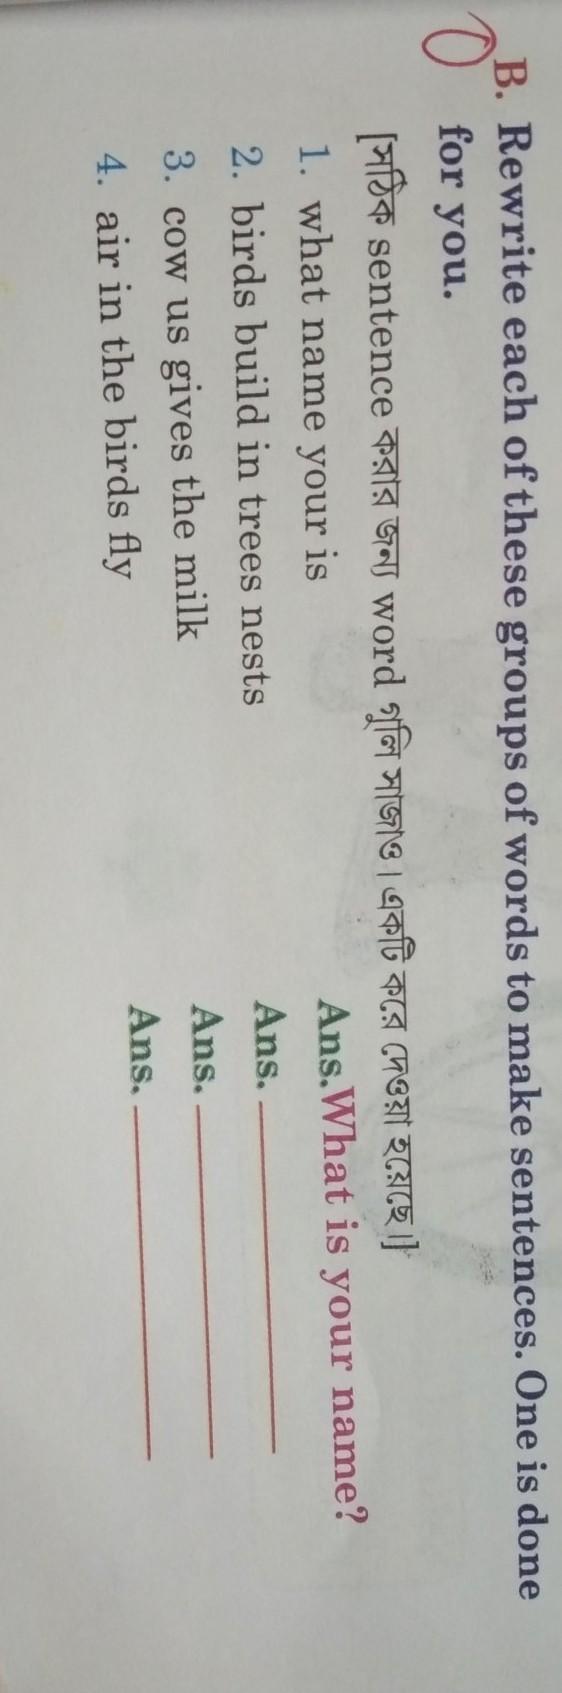 B. Rewrite each of these groups of words to make sentences. One is done
for you.
[সঠিক sentence করার জন্য word গুলি সাজাও। একটি করে দেওয়া হয়েছে।]
1. what name your is Ans. What is your name?
2. birds build in trees nests Ans.
3. cow us gives the milk Ans.
4. air in the birds fly Ans.